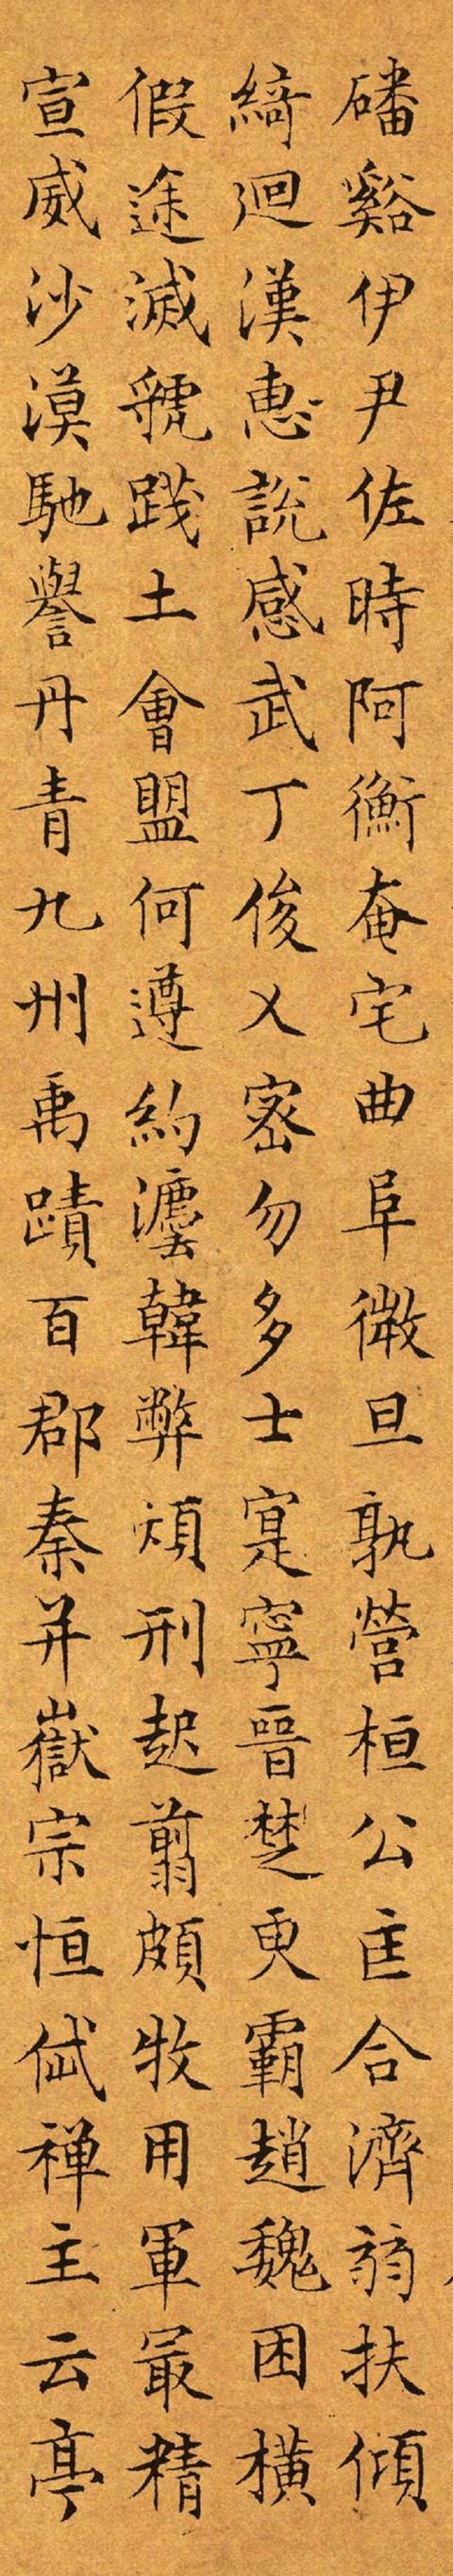 磻谿伊尹佐時阿衡奄宅曲阜微旦孰營桓公匡合濟弱扶傾
綺迴漢惠說感武丁俊乂密勿多士寔寧晉楚更霸趙魏困橫
假途滅虢踐土會盟何遵約灋韓弊煩刑起翦頗牧用軍最精
宣威沙漠馳譽丹青九州禹蹟百郡秦并嶽宗恒岱禅主云亭